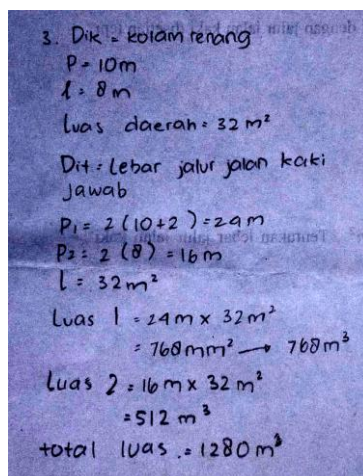 3. Dik = kolam renang
P = 10m
l = 8m
luas daerah = 32 m²
Dit = Lebar jalur jalan kaki
jawab
P₁ = 2 (10+2) = 24m
P₂ = 2 (8) = 16m
l = 32m²
Luas 1 = 24m x 32m²
= 768mm² → 768m³
Luas 2 = 16m x 32 m²
= 512 m³
total luas = 1280 m³